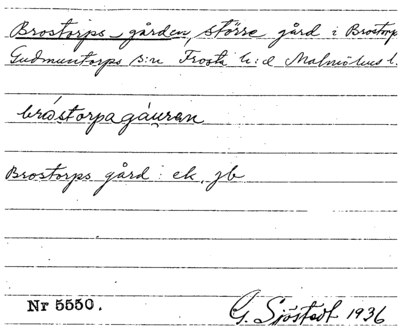 Brostorps gården, större gård i Brostorp
Gudmuntorps s:n Frosta h:d Malmöhus l.
bròstorpagáuran
Brostorps gård: ek, jb
Nr 5550.
G. Sjöstedt 1936